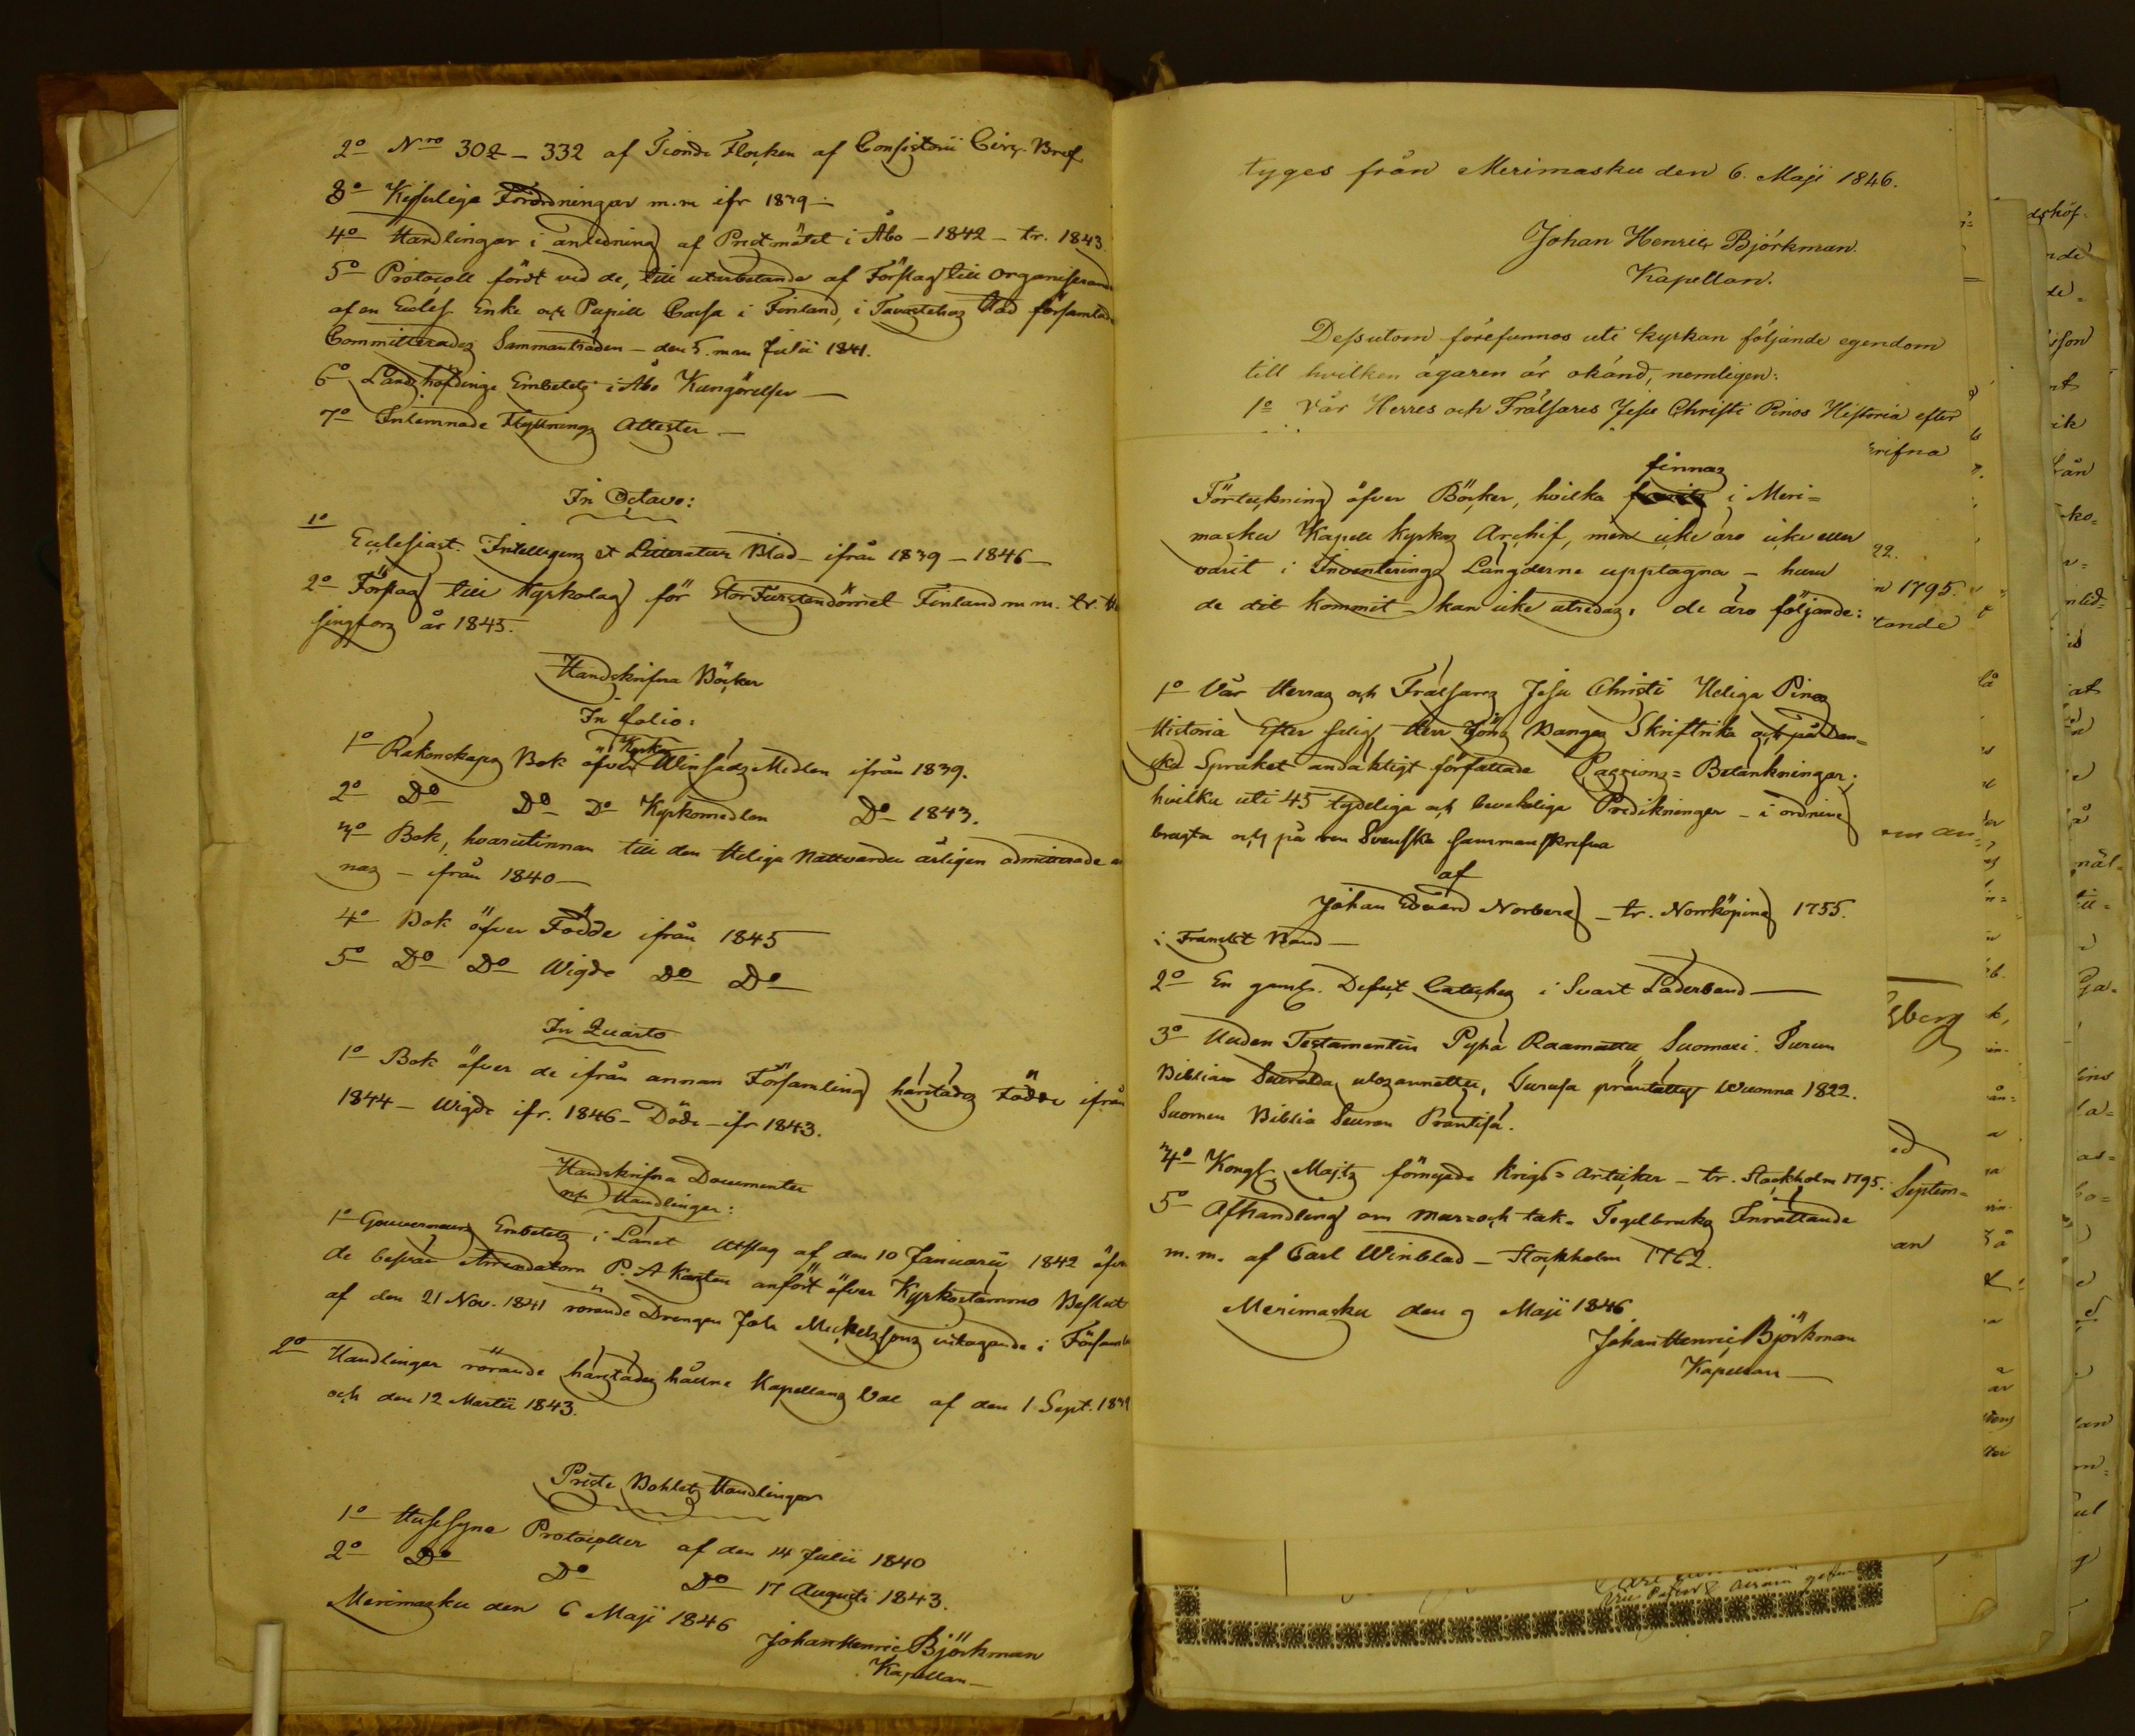 2o Nro 302 - 332 af Tionde Flocken af Consistorii Circ. Bref
3o Kejserliga Förordningar m.m ifr 1839 -
4o Handlingar i anledning af Prestmötet i Åbo - 1842 - tr. 1843
5o Protocoll fördt vid de, till utarbetande af Förslag till organiserand
af en Eccles. Enke och Pupill Cassa i Finland, i Tavastehus Stad församlade
Committerades Sammanträden - den 5. m.m Julii 1841.
6o Landshöfdinge Embetets i Åbo Kungörelser -
7o Inlemnade Flyttnings Attester -
In Octavo:
1o Ecclesiast. Intelligens et Litteratur Blad - ifrån 1839 - 1846 -
2o Förslag till Kyrkolag för StorFurstendömet Finland m.m. tr. He
singfors år 1845.
Handskrifna Böcker
In folio:
Kyrko
1o Räkenskaps Bok öfver Winsäds Medlen ifrån 1839.
2o Do Do Do Kyrkomedlen Do 1843.
3o Bok, hvarutinnan till den Heliga Nattvarden årligen admitterade
nas - ifrån 1840 -
4o Bok öfver Födde ifrån 1845
5o Do Do Wigde Do Do
In Quarto
1o Bok öfver de ifrån annan Församling härstädes Födde ifrån
1844 - Wigde ifr. 1846 - Döde - ifr 1843.
Handskrifna Documenter
och Handlingar:
1o Gouverneurs Embetets i Länet Utslag af den 10 Januarii 1842 öfve
de besvär Arrendatorn P. A Karsten anfört öfver Kyrkostämmo Beslut
af den 21 Nov. 1841 rörande Drengen Joh. Mickelssons intagande i Församl
2o Handlingar rörande härstädes hållne Kapellans Val af den 1 Sept. 1839
och den 12 Martii 1843.
Preste Bohlets Handlingar
1o HusSyns Protocoller af den 14 Julii 1840
2o Do Do Do 17 Augusti 1843.
Merimasku den 6 Maji 1846
Johan Henric Björkman
Kapellan -
tyges från Merimasku den 6. Maji 1846.
Johan Henric Björkman.
Kapellan.
Dessutom förefunnos uti kyrkan följande egendom
till hvilken ägaren är okänd, nemligen:
1o Vår Herres och Frälsares Jesu Christi Pinos Historia efter
finnas
Förteckning öfver Böcker, hvilka i Meri=
masku Kapell Kyrkos Archif, men icke äro icke eller
varit i Inventerings Längderne upptagna - huru
de dit kommit - kan icke utredas. de äro följande:
1o Vår Herras och Frälsares Jesu Christi Heliga Pinos
Historia Efter salig Herr Jöns Banges Skriftrika och på Dan=
ska Språket andäktigt författade Passions=Betänkningar;
hvilka uti 45 tydeliga och bevekeliga Predikningar - i ordning
bragta och på ren Svenska sammanskrefna
af
Johan Edvard Norberg - tr. Norrköping 1755.
i Franskt Band -
2o En gaml. Defect Cateches i Svart Läderband -
3o Uuden Testamentin Pyhä Raamattu Suomexi. Turun
Biblian Seuralda ulosannettu, Turusa präntätty Wuonna 1822.
Suomen Biblia Seuran Präntisä.
4o Kongl. Maj:ts förnyade Krigs=Articker - tr. Stockholm 1795.
5o Afhandling om Mur= och tak= Tegelbruks Inrättande
m.m. af Carl Winblad - Stockholm 1762.
Merimasku den 9 Maji 1846
Johan Henric Björkman
Kapellan -